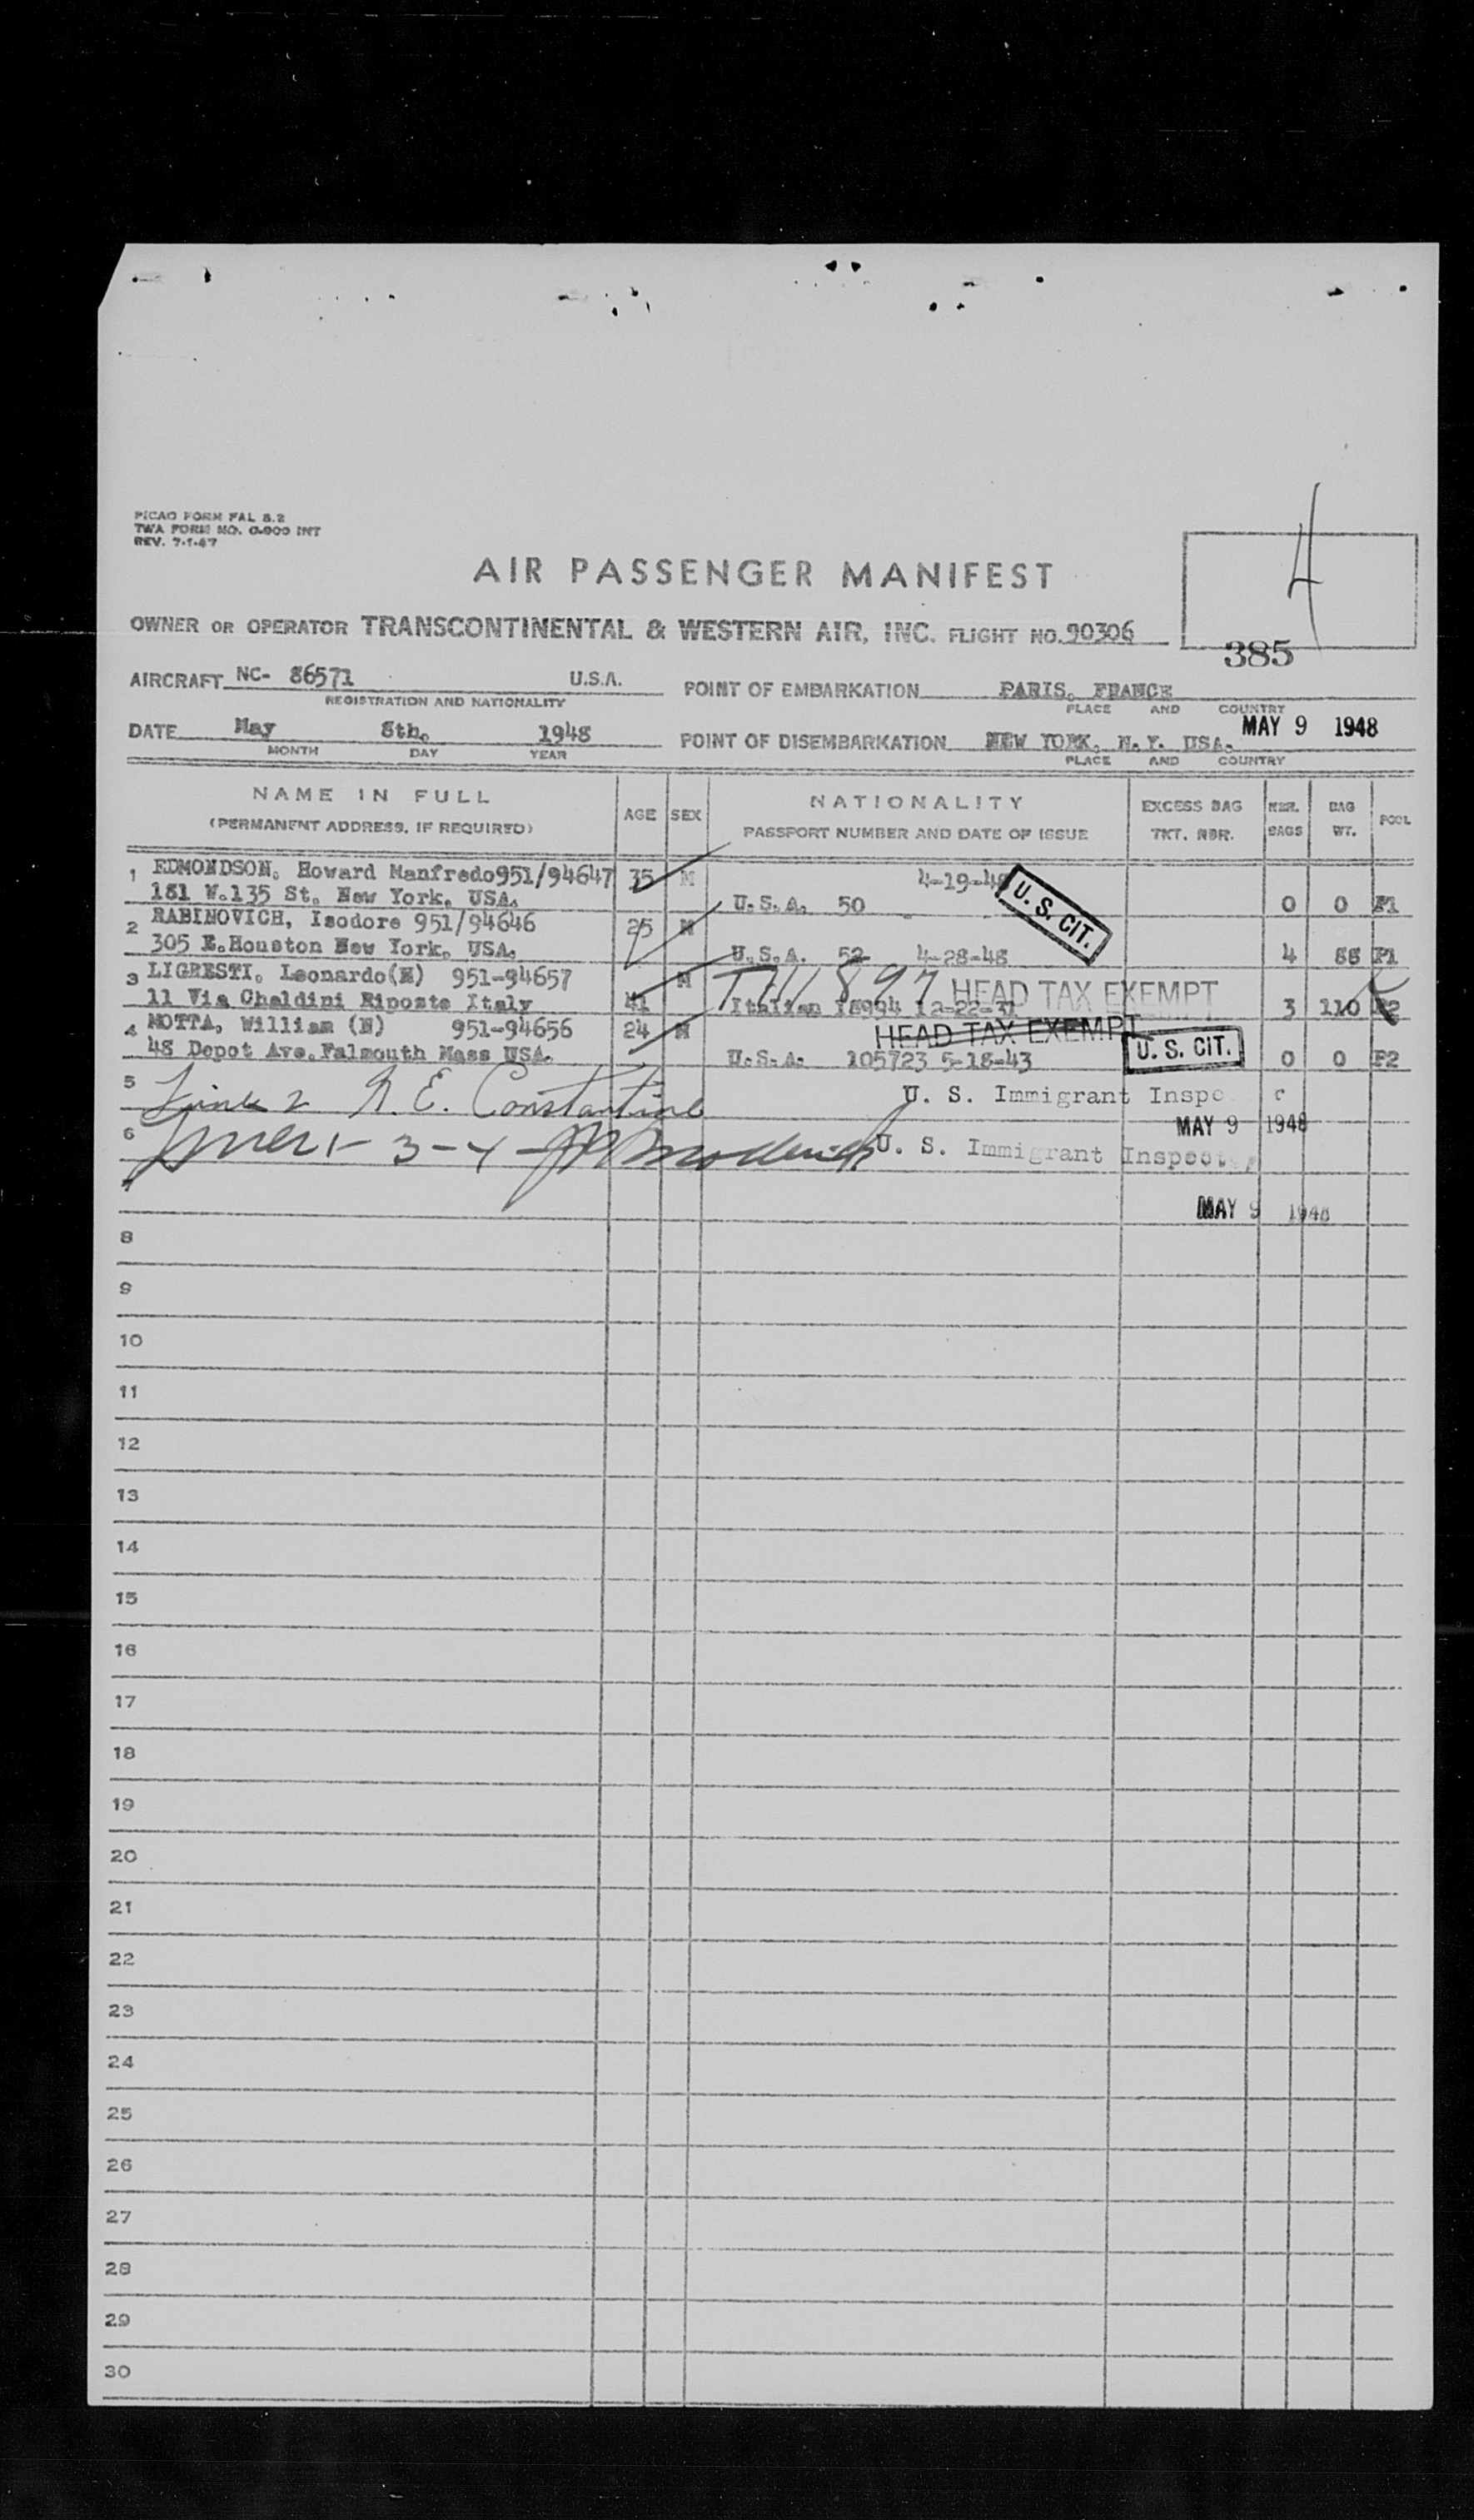 PICAO FORM FAL 8.2
TWA FORM NO. O-900 INT
REV. 7-1-47
4
AIR PASSENGER MANIFEST
OWNER OR OPERATOR TRANSCONTINENTAL & WESTERN AIR, INC. FLIGHT NO. 90306
385
AIRCRAFT NC- 86571 U.S.A. POINT OF EMBARKATION PARIS, FRANCE
REGISTRATION AND NATIONALITY PLACE AND COUNTRY
MAY 9 1948
DATE May 8th, 1948 POINT OF DISEMBARKATION NEW YORK, N.Y. USA.
MONTH DAY YEAR PLACE AND COUNTRY
NAME IN FULL AGE SEX NATIONALITY EXCESS BAG NBR. BAG POOL
(PERMANENT ADDRESS, IF REQUIRED) PASSPORT NUMBER AND DATE OF ISSUE TKT. NBR. BAGS WT.
1 EDMONDSON, Howard Manfredo 951/94647 35 M 4-19-48 U. S. CIT.
181 W.135 St, New York, USA. U.S.A. 50 0 0 P1
2 RABINOVICH, Isodore 951/94646 25 M
305 E.Houston New York, USA. U.S.A. 52 4-28-48 4 88 P1
3 LIGRESTI, Leonardo(N) 951-94657 M HEAD TAX EXEMPT
11 Via Chaldini Riposte Italy 41 Italian 18994 12-22-31 3 110 P2
4 MOTTA, William (N) 951-94656 24 M HEAD TAX EXEMPT
48 Depot Ave. Falmouth Mass USA. U.S.A. 105723 5-18-43 U. S. CIT. 0 0 P2
5 Line 2 N. E. Constantine U. S. Immigrant Inspe c
MAY 9 1948
6 Lines 1-3-4 U. S. Immigrant Inspector
7 MAY 9 1948
8
9
10
11
12
13
14
15
16
17
18
19
20
21
22
23
24
25
26
27
28
29
30